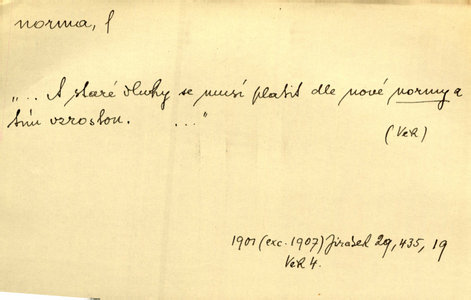 norma, f
„... A staré dluhy se musí platit dle nové normy a
tím vzrostou. ..."
(Věk)
1901 (exc. 1907) Jirásek 29, 435, 19
Věk 4.